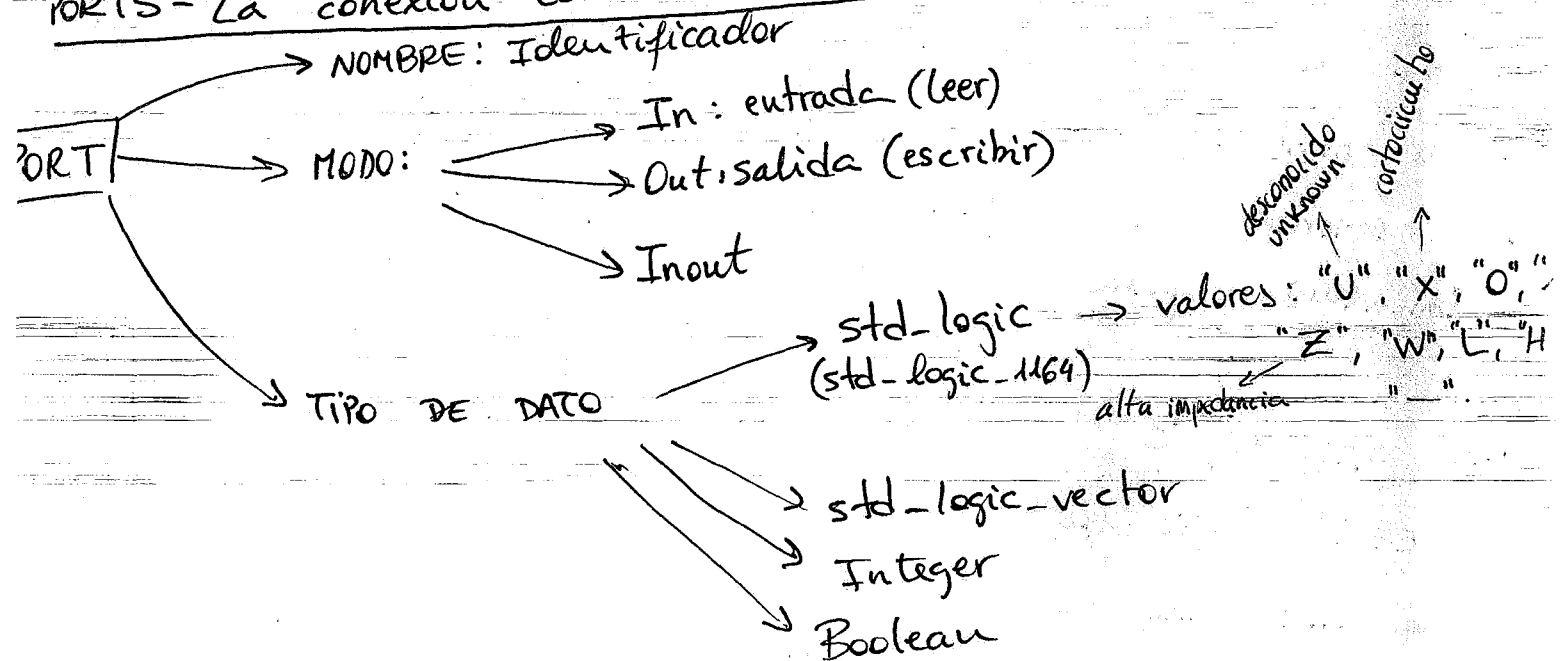 PORTS - La conexión
NOMBRE: Identificador
PORT
MODO:
In: entrada (leer)
Out: salida (escribir)
Inout
TIPO DE DATO
std_logic
(std_logic_1164)
valores: "U", "X", "0", "
desconocido
unknown
cortocircuito
"Z", "W", "L", "H
alta impedancia
"_".
std_logic_vector
Integer
Boolean